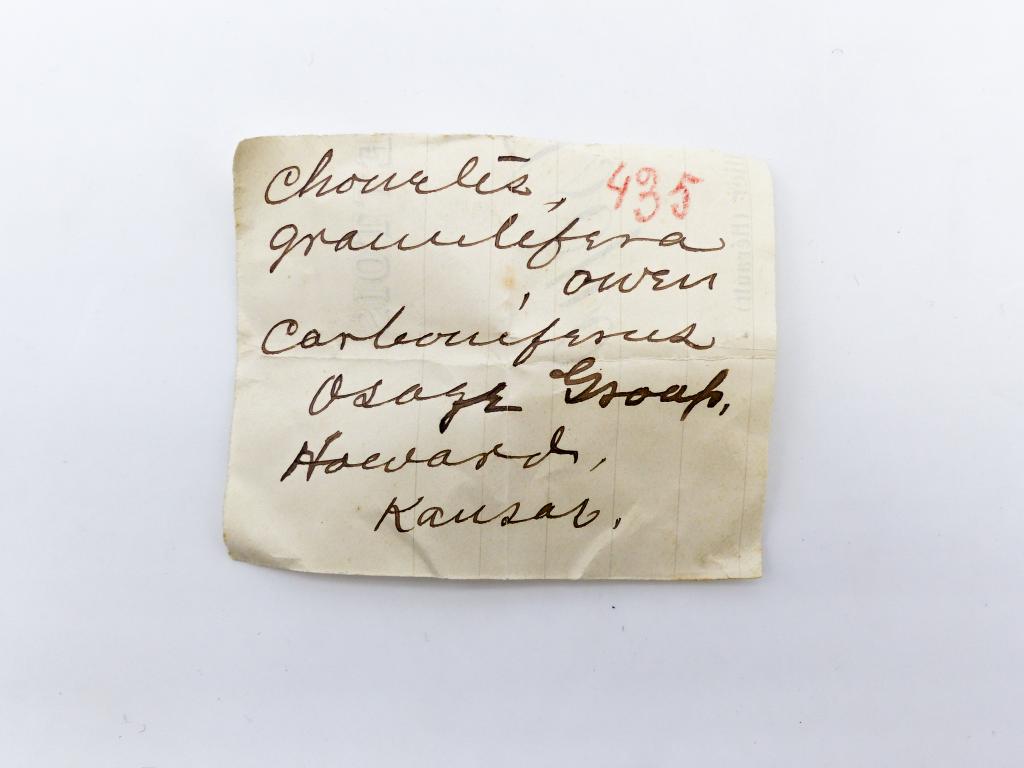 Chonetes, 435
granulifera
, Owen
Carboniferus
Osage Group,
Howard,
Kansas.